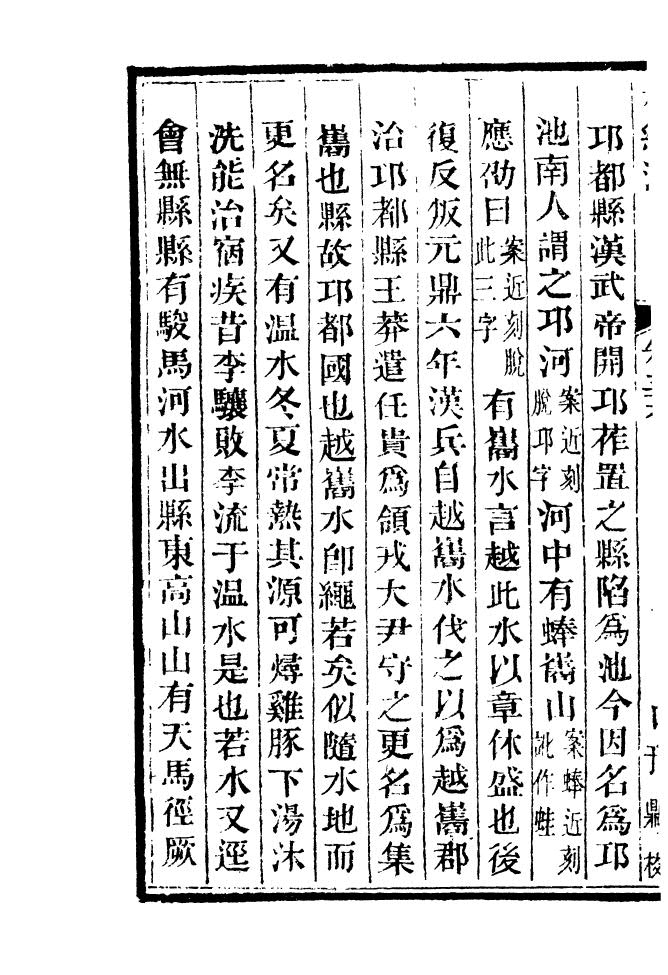 邛都縣漢武帝開邛莋置之縣陷爲池今因名爲邛
池南人謂之邛河案近刻脫邛字河中有蜯嶲山案蜯近刻訛作蛙
應劭曰案近刻脫此三字有嶲水言越此水以章休盛也後
復反叛元鼎六年漢兵自越嶲水伐之以爲越嶲郡
治邛都縣王莽遣任貴爲領戎大尹守之更名爲集
嶲也縣故邛都國也越嶲水卽繩若矣似隨水地而
更名矣又有温水冬夏常熱其源可燖雞豚下湯沐
洗能治宿疾昔李驤敗李流于温水是也若水又逕
會無縣縣有駿馬河水出縣東高山山有天馬徑厥